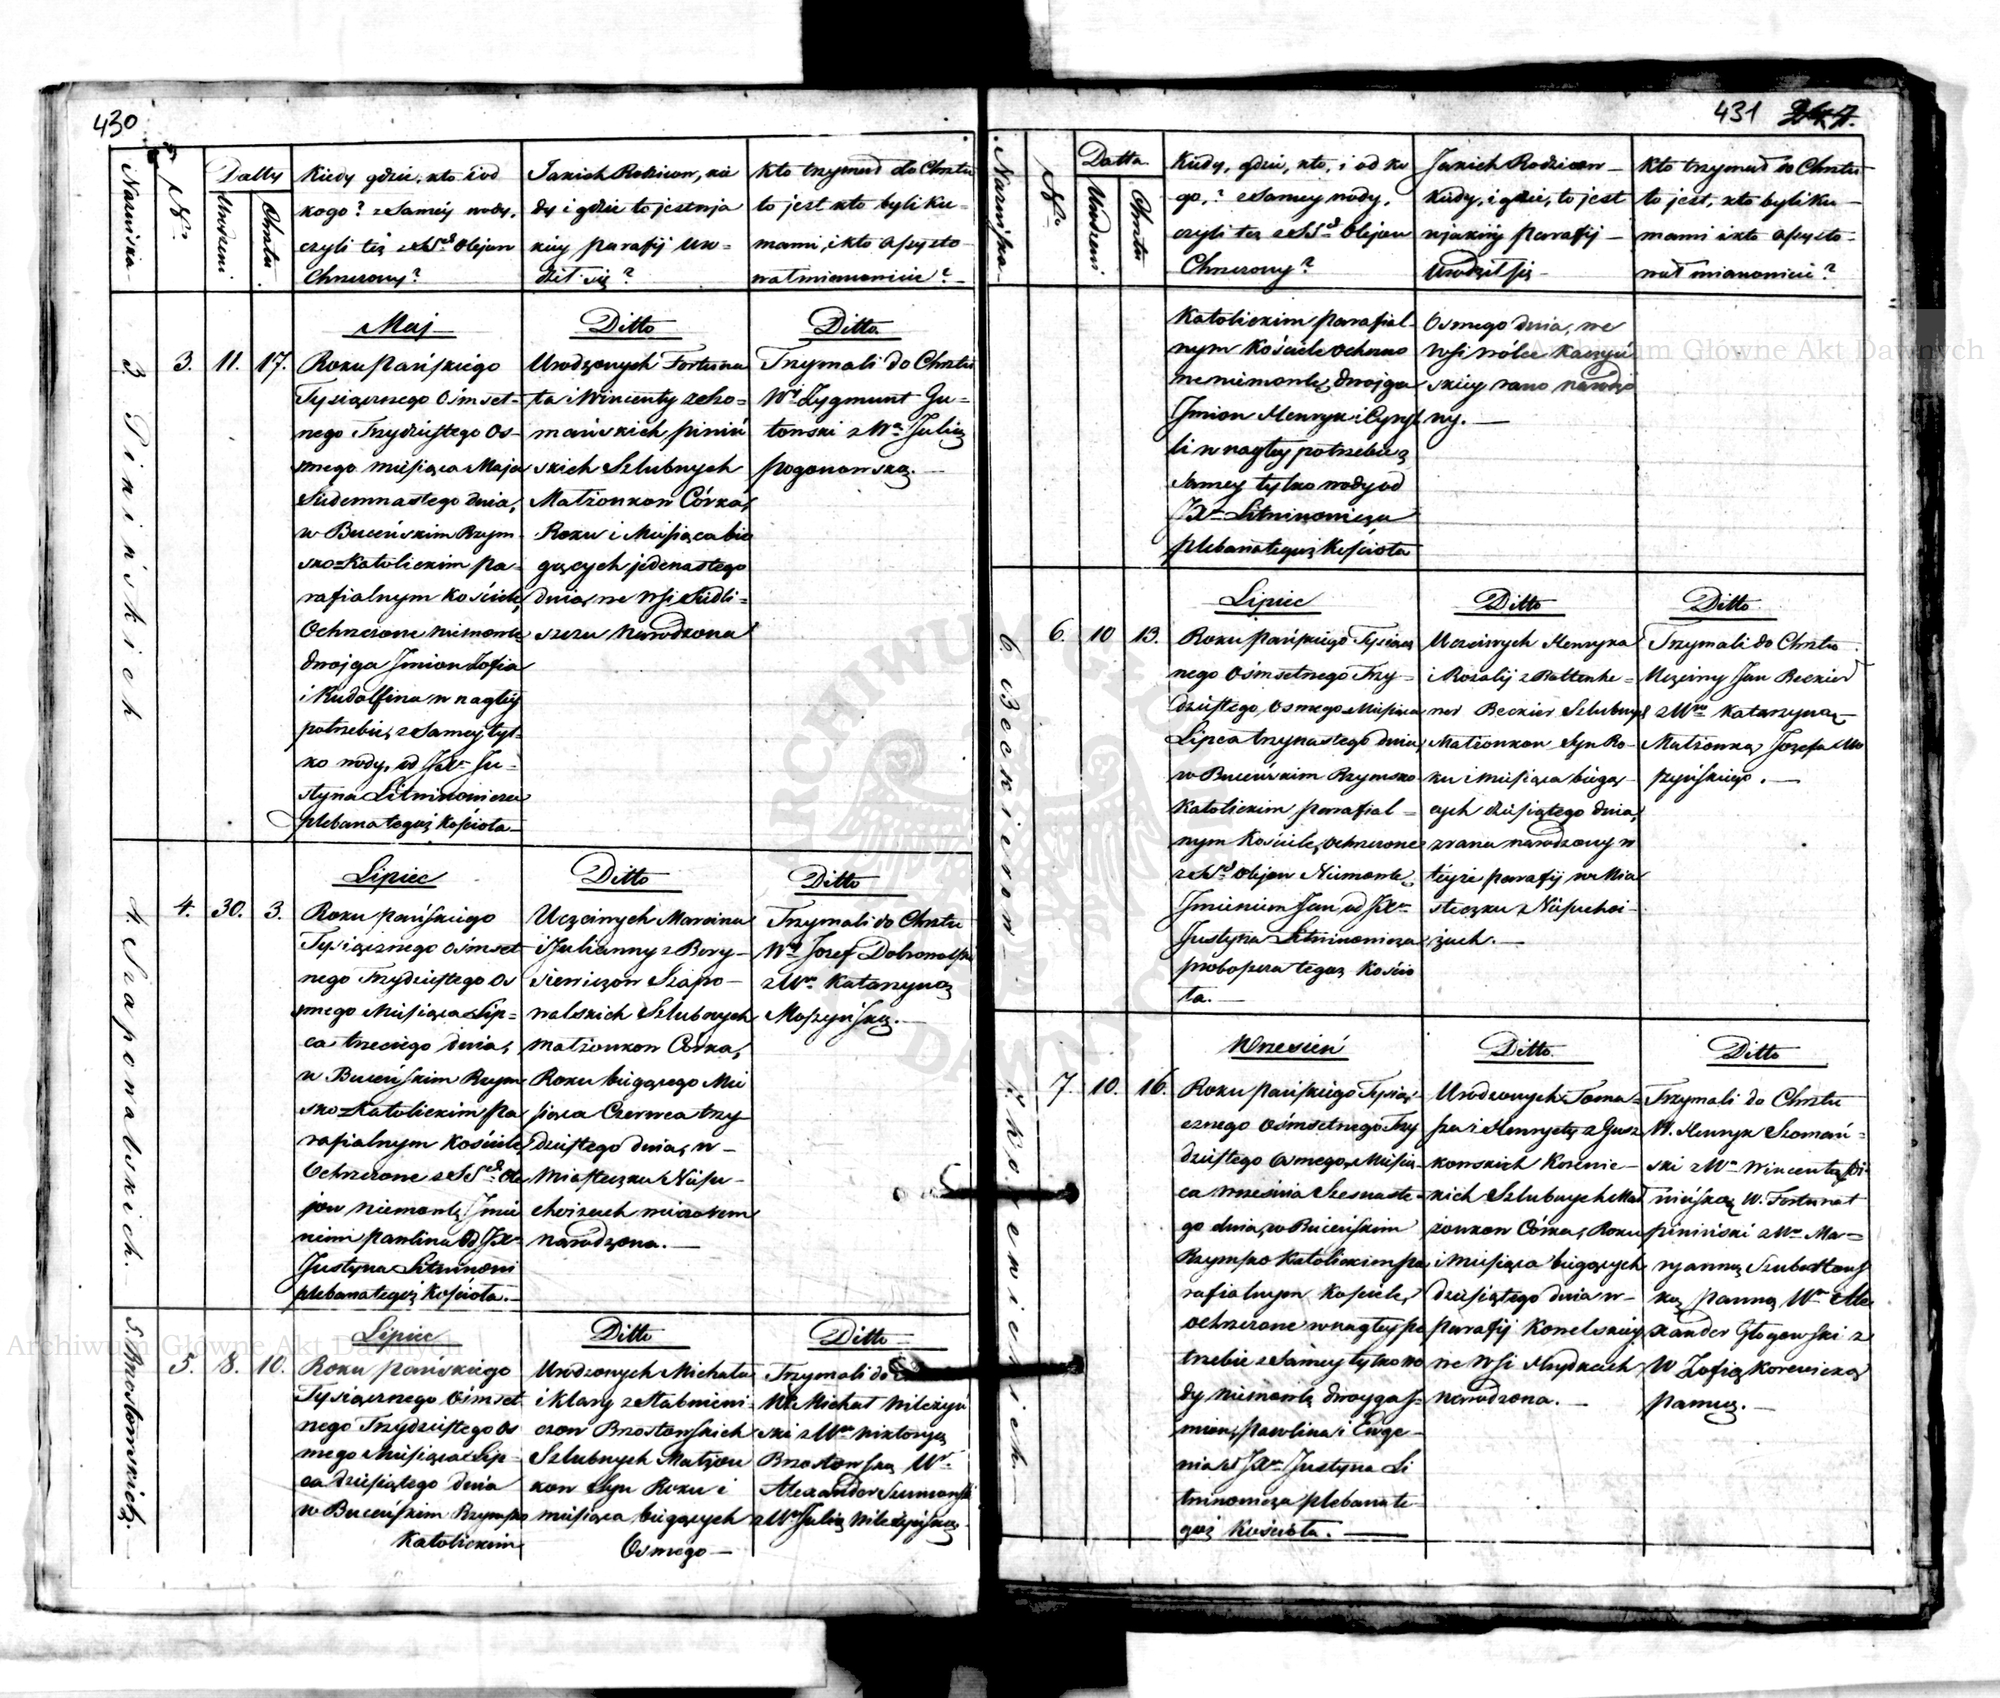 430
Nazwiska
Nro
Datty
Urodzeni
Chrztu
Kiedy gdzie, kto i od
kogo? z Samey wody,
czyli też z SStt Olejow
Chrzczony?
Jakich Rodzicow, kie
dy i gdzie to jest w ja
kiey parafij Uro=
dził się?
Kto trzymał do Chrztu
to jest kto byli Ku=
mami, i kto assysto=
wał mianowicie?
3 Pinińskich
3. 11. 17.
Maj
Roku Pańskiego
Tysiącznego Osmset=
nego Trzydziestego Os=
mego miesiąca Maja
Siedemnastego dnia,
w Buceńskim Rzym=
sko=Katolickim Pa=
rafialnym Kosciele,
Ochrzczone niemowle
dwojga Jmion Zofia
i Rudolfina w nagłey
potrzebie, z Samey tyl=
ko wody, od JXa Ju=
styna Litwinowicza
plebana tegoż Kościoła
Ditto
Urodzonych Fortuna
ta i Wincenty z Szo=
mańskich Piniń
skich Szlubnych
Matżonkow Córka,
Roku i Miesiąca bie
żących jedenastego
dnia, we Wsi Siedli=
szczu Narodzona
Ditto
Trzymali do Chrztu
Wd Zygmunt Gu=
towski z Wą Julią
Pogonowską.
4. Szapowalskich.
4. 30. 3.
Lipiec
Roku pańskiego
Tysiącznego osmset
nego Trzydziestego Os
mego Miesiąca Lip=
ca trzeciego dnia,
w Buceńskim Rzym
sko=Katolickim Pa
rafialnym Kościele
Ochrzczone z SStt Ole
jow niemowle Jmie
niem Pawlina od JXa
Justyna Litwinowi
plebana tegoż Kościoła.
Ditto
Uczciwych Marcina
i Julianny z Bory=
siewiczow Szapo=
walskich Szlubnych
Matżonkow Córka,
Roku bieżącego Mie
siąca Czerwca trzy
dziestego dnia, w
Miasteczku Niesu=
choiżach wieczorem
narodzona.
Ditto
Trzymali do Chrztu
Wd Jozef Dobrowolski
z Wą Katarzyną
Moszyńską.
5. Brzostowskich.
5. 8. 10.
Lipiec
Roku Pańskiego
Tysiącznego Osmset
nego Trzydziestego Os
mego Miesiąca Lip=
ca dziesiątego dnia
w Buceńskim Rzymsko
Katolickim
Ditto
Urodzonych Michała
i Klary z Małmieni
czow Brzostowskich
Szlubnych Matżon
kow Syn Roku i
miesiąca bieżących
Osmego
Ditto
Trzymali do
Wd Michał Wilczyń
ski z Wą Wiktoryą
Brzostowską W.
Alexander Szumowski
z Wą Julią Wilczyńską
431
Nazwiska
Nro
Datta
Urodzeni
Chrztu
Kiedy, gdzie, kto, i od ko
go,? z Samey wody,
czyli też z SStt Olejow
Chrzczony?
Jakich Rodzicow
kiedy, i gdzie, to jest
w jakiey Parafij
Urodził się
Kto trzymał do Chrztu
to jest, kto byli Ku
mami i kto assysto=
wał mianowicie?
Katolickim parafial=
nym Kościele ochrzczo
ne niemowle, dwojga
Jmion Henryk i Cyryl
li w nagłey potrzebie z
Samey tylko wody od
JXa Litwinowicza
plebana tegoż Kościoła
Osmego dnia, we
Wsi Wolce Kaszyń
skiey rano narodzo
ny.
6 Beckierow.
6. 10 13.
Lipiec
Roku Pańskiego Tysiącz
nego Ośmsetnego Trzy=
dziestego, Osmego Miesiąca
Lipca trzynastego dnia,
w Buceńskim Rzymsko
Katolickim parafial=
nym Kościele, ochrzczone
z SStt Olejow Niemowle,
Jmieniem Jan, od JXa
Justyna Litwinowicza
proboszcza tegoż Kościo
ła.
Ditto
Uczciwych Henryka
i Rozalij z Battenke=
now Beckier Szlubnych
Matżonkow Syn Ro=
ku i miesiąca bieżą=
cych dziesiątego dnia,
z rana narodzony w
teyże parafij w Mia
steczku z Niesuchoi=
żach.
Ditto
Trzymali do Chrztu
Uczciwy Jan Beckier
z Wą Katarzyną
Matżonką Jozefa Mo
szyńskiego.
7. Korzeniewskich.
7. 10. 16.
Wrzesień
Roku Pańskiego Tysią=
cznego Ośmsetnego Trzy
dziestego Osmego, Miesią
ca Wrzesnia Szesnaste=
go dnia, w Buceńskim
Rzymsko Katolickim pa
rafialnym Kościele,
ochrzczone w nagłey po
trzebie z Samey tylko wo
dy niemowle dwoyga J=
mion, Pawlina i Euge=
nia od JXa Justyna Li
twinowicza plebana te=
goż Kościoła.
Ditto
Urodzonych Toma=
sza i Henryety z Gusz
kowskich Korzenie=
kich Szlubnych Mat
żonkow Córka, Roku
i Miesiąca bieżących
dziesiątego dnia w
parafij Kowelskiey
we Wsi
narodzona.
Ditto
Trzymali do Chrztu
W. Henryk Szomań=
ski z Wą Wincentą Pi
nińską W. Fortunat
Piniński z Wą Ma=
ryanną Szubertows
ką Panną Wn Ale
xander Głogowski z
W Zofią Korewicką
panną.
Archiwum Główne Akt Dawnych
Archiwum Główne Akt Dawnych